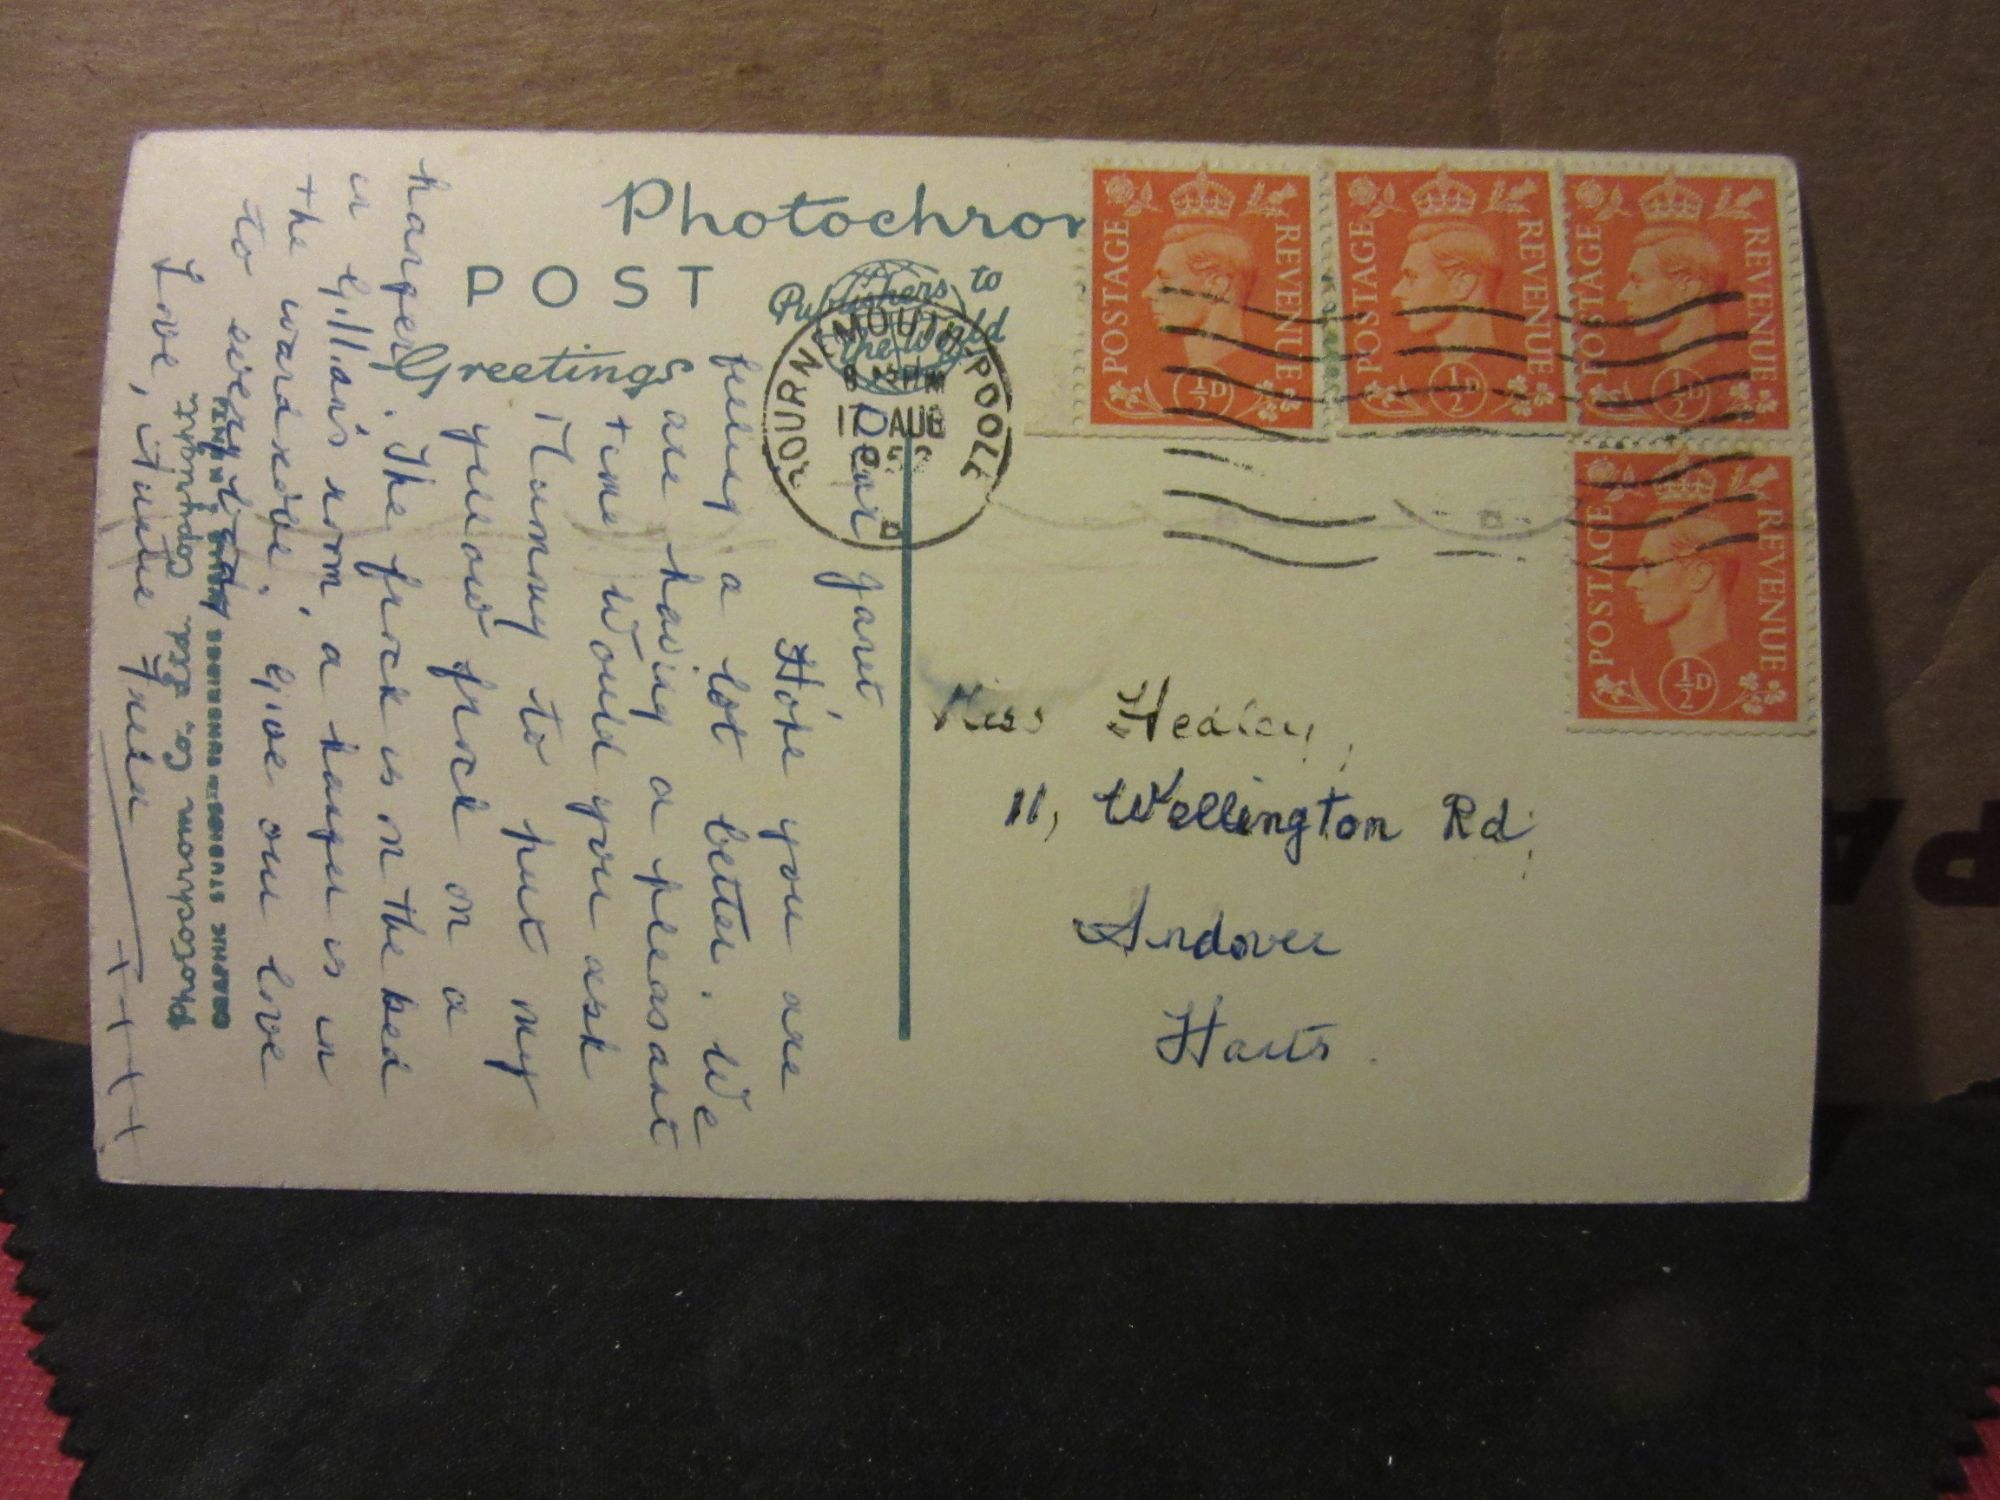 Photochrom
POST
Publishers to
the World
Greetings
BOURNEMOUTH-POOLE
17 AUG
D
POSTAGE REVENUE ½D
POSTAGE REVENUE ½D
POSTAGE REVENUE ½D
POSTAGE REVENUE ½D
Miss Healey,
11, Wellington Rd,
Andover
Hants.
Dear Janet
Hope you are
feeling a lot better. We
are having a pleasant
time. Would you ask
Mummy to put my
yellow frock on a
hanger. The frock is on the bed
in Gillian's room, a hanger is in
the wardrobe. Give our love
to everybody
Love, Auntie
++++
Photochrom Co. Ltd. Copyright.
GRAPHIC STUDIOS TUNBRIDGE WELLS KENT
PA